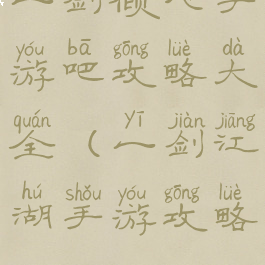 yóu bā gōng lüè dà
游吧攻略大
quán yī jiàn jiāng
全（一剑江
hú shǒu yóu gōng lüè
湖手游攻略